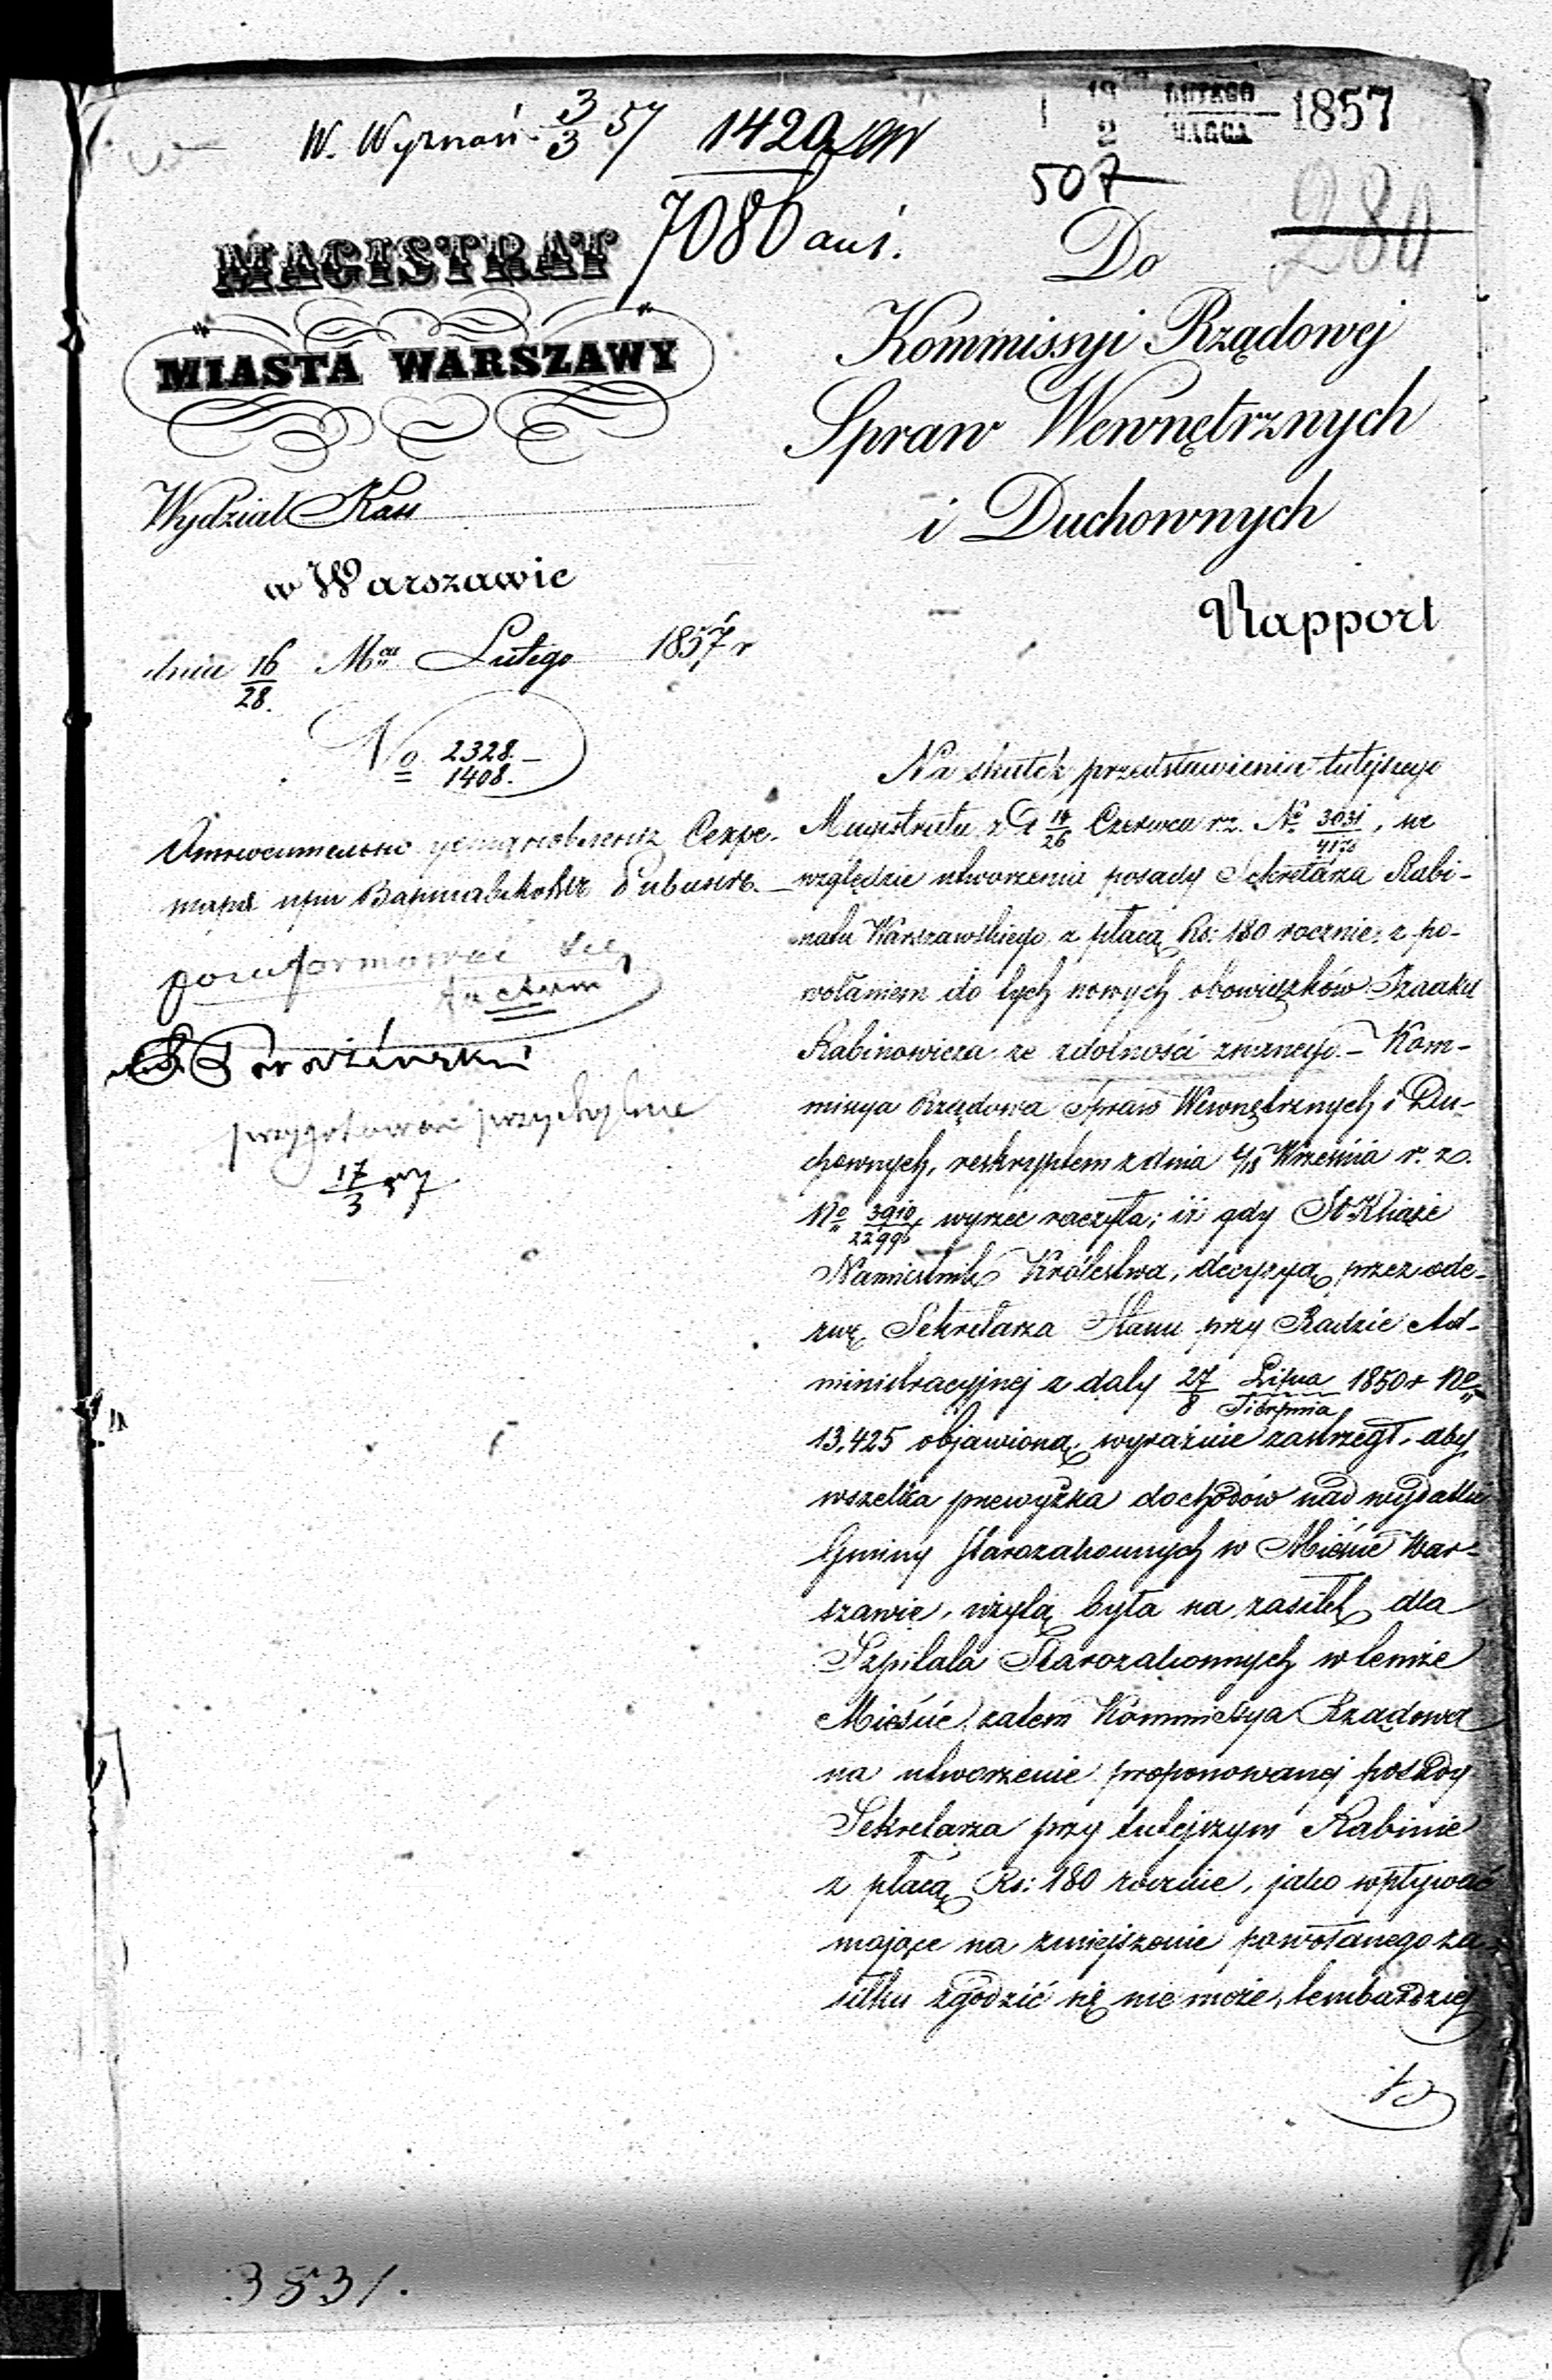 W. Wyznań 3/3 57
1420
7086 aus.
19/2 LUTEGO/MARCA 1857
507
280
MAGISTRAT
MIASTA WARSZAWY
Wydział Kass
w Warszawie
dnia 16/28. Mca Lutego 1857 r
No 2328./1408.
относительно учрежденія Секре-
таря при Варшавском Раввине.
poinformować się
Factum
przygotować przychylnie
17/3 57
Do
Kommissyi Rządowej
Spraw Wewnętrznych
i Duchownych
Rapport
Na skutek przedstawienia tutejszego
Magistratu z d 14/26 Czerwca r. z. No 3031, we
względzie utworzenia posady Sekretarza Rabi-
natu Warszawskiego z płacą Rs: 180 rocznie, z po-
wołaniem do tych nowych obowiązków Izaaka
Rabinowicza ze zdolności znanego. – Kom-
missya Rządowa Spraw Wewnętrznych i Du-
chownych, reskryptem z dnia 6/18 Września r. z.
No 3910/22996 wyrzec raczyła; iż gdy JO Książe
Namiestnik Królestwa, decyzyą przez ode-
zwę Sekretarza Stanu przy Radzie Ad-
ministracyjnej z daty 27 Lipca/8 Sierpnia 1850 r No
13,425 objawioną, wyraźnie zastrzegł, aby
wszelka przewyżka dochodów nad wydatki
Gminy Starozakonnych w Mieście War-
szawie, użytą była na zasiłek dla
Szpitala Starozakonnych w temże
Mieście, zatem Kommissya Rządowa
na utworzenie proponowanej posady
Sekretarza przy tutejszym Rabinie
z płacą Rs: 180 rocznie, jako wpływać
mające na zmniejszenie powołanego za-
siłku zgodzić się nie może, tembardziej
iż
3831.